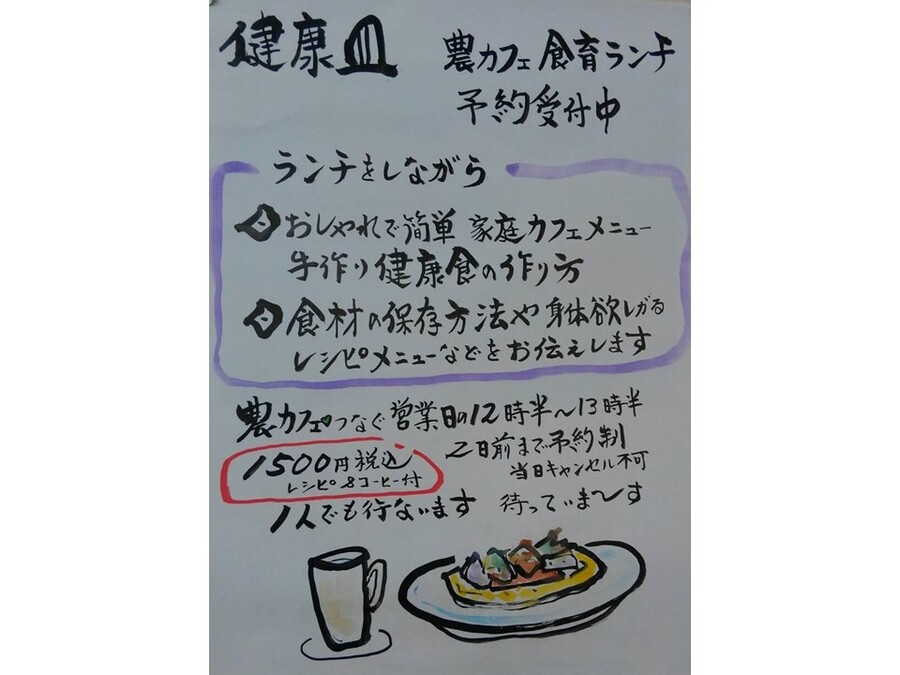 健康皿
農カフェ食育ランチ
予約受付中
ランチをしながら
おしゃれで簡単 家庭カフェメニュー
手作り健康食の作り方
食材の保存方法や身体欲しがる
レシピメニューなどをお伝えします
農カフェつなぐ営業日の12時半〜13時半
1500円税込
レシピ&コーヒー付
2日前まで予約制
当日キャンセル不可
1人でも行ないます 待っていま〜す